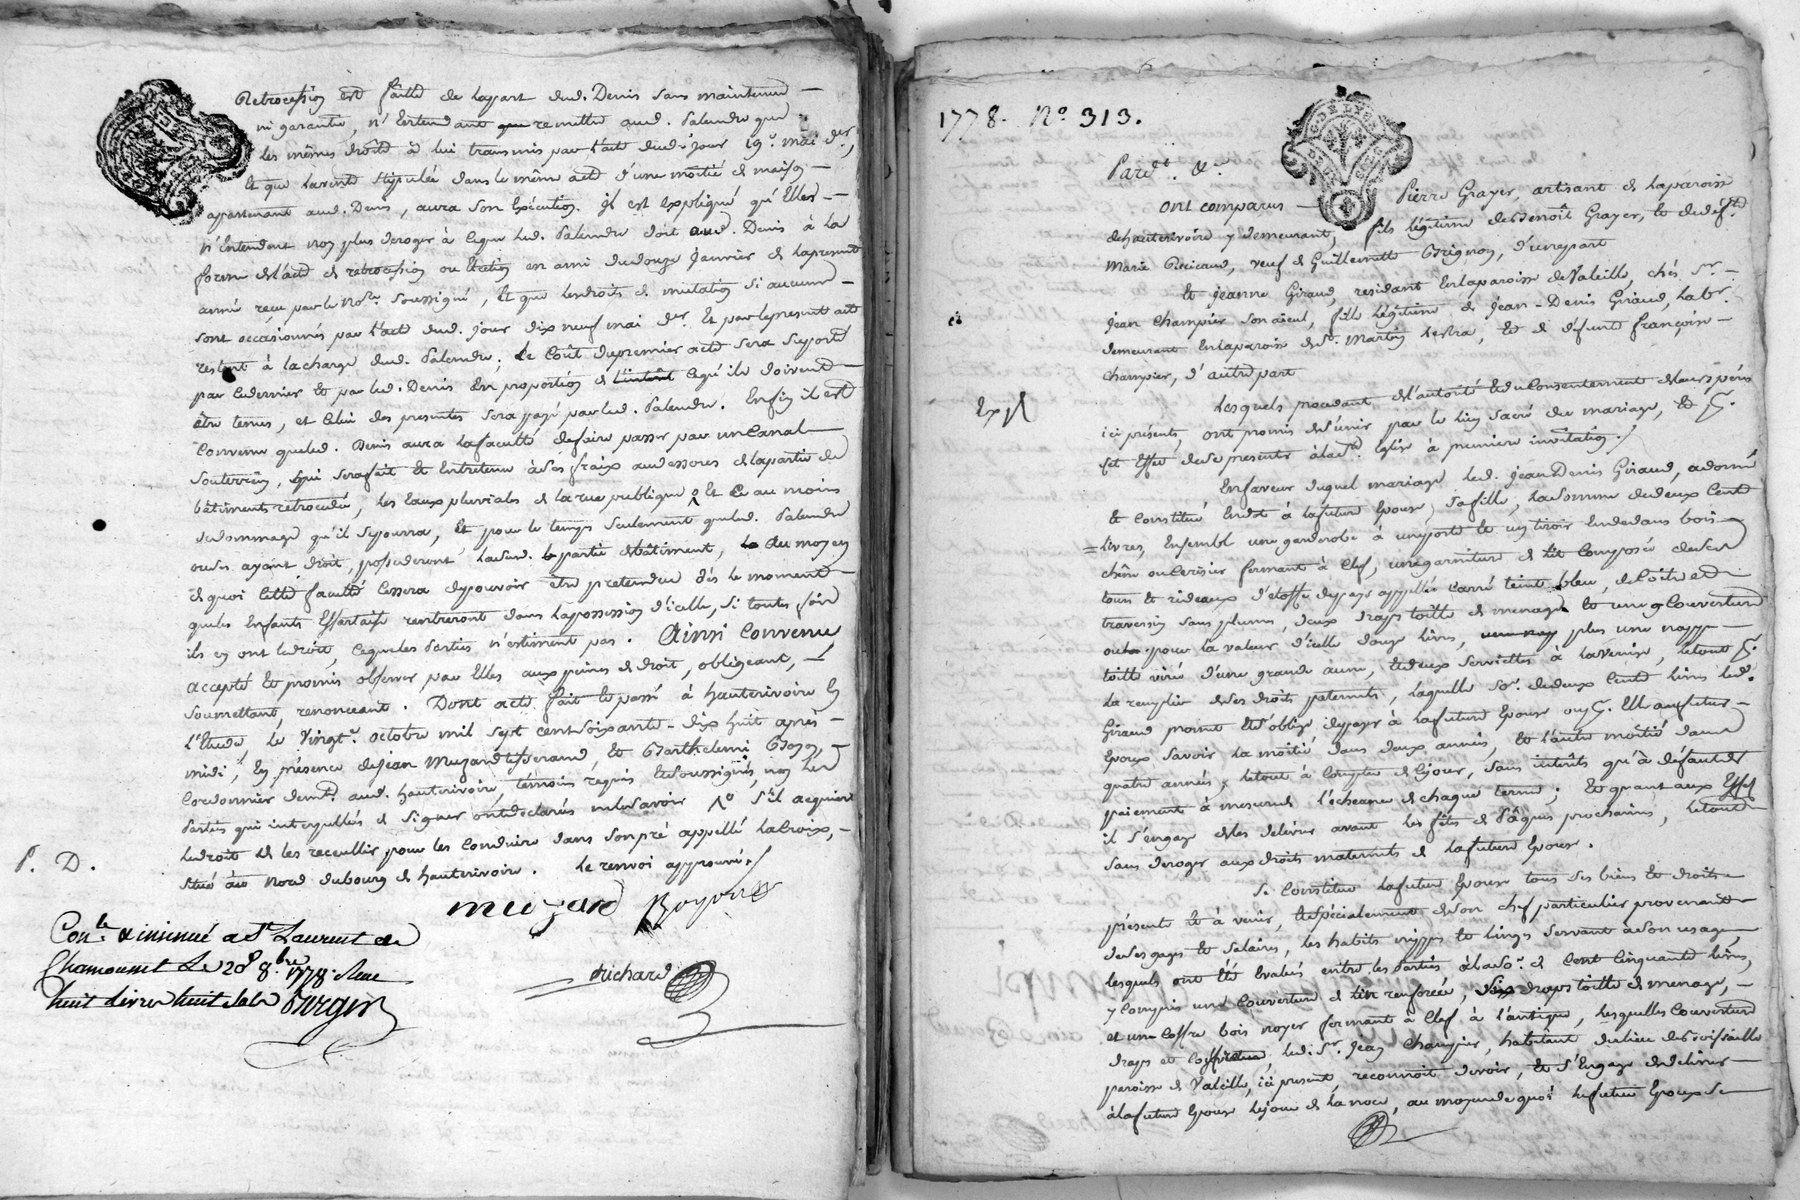 Retrocession est faitte de lapart dud. Denis sans maintenue
ni garantie, n'Entendant que remettre aud. Palandre que
les mêmes droits à lui transmis par l'acte dud. jour 19e. mai der,
Et que lavente stipulée dans le même acte d'une moitié de maison
apartenant aud. Denis, aura son Exécution. Il est Expliqué qu'Elles
n'Entendent non plus deroger à ceque led. Palandre doit aud. Denis à la
forme de l'acte de retrocession ou Election en ami dudouze Janvier de lapresente
année recu par le Nore. soussigné, Et que lesdroits de mutation si aucuns
sont occasionnés par l'acte dud. jour dix neuf mai der. Et par leprésent acte
restent à lacharge dud. Palandre; le Coût dupremier acte sera suporté
par cedernier Et par led. Denis En proportion de l'intérêt cequ'ils doivent
être tenus, et Celui des presentes sera payé par led. Palandre. Enfin il est
Convenu queled. Denis aura lafaculté defaire passer par un Canal
souterrein, qui serafait Et Entretenu àses fraix audessores de lapartie de
bâtiments retrocedée, les Eaux pluviales de la rue publique Et au moins
dedommage qu'il sepourra, Et pour le temps seulement queled. Palandre
ouses ayant droit, possederont ladite partie debâtiment, Au moyen
de quoi Cette faculté Cessera depouvoir être pretendue dès le moment
queles Enfants Essertaise rentreront dans lapossession d'icelle, si toutes fois
ils en ont ledroit, cequeles Parties n'estiment pas. Ainsi Convenu
accepté Et promis observer par Elles aux peines de droit, obligeant,
soumettant, renonceant. Dont acte fait Et passé à hauterivoire En
l'Etude, le Vingte. octobre mil sept centsoixante-dix huit après
midi, En présence dejean Muzard tisserand, Et Barthelemi Boyon,
Cordonnier demt. aud. hauterivoire, témoins requis Et soussignés, non les
Parties qui interpellées de signer ontdeclarés nelesavoir / o S'il acquiert
ledroit de les recceullir pour les Conduire dans sonpré appellé laCroix,
situé au Nord dubourg de hauterivoire. le renvoi approuvé./
P. D.
muzard Boyon
Richard
Conle. & insinué a St Laurent de
Chamousset Le 28 8bre. 1778. Recu
huit livres huit sols Berger
1778. No 313.
Pardt. &a
ont comparus Pierre Grayer, artisan de laparoisse
dehauterivoire y demeurant, fils légitime deBenoît Grayer, Et dedéfte
Marie Pricaud, veuf de Guillemette Brignon, d'unepart
Et jeanne Giraud, residant Enlaparoisse deValeille, chés sr.
jean Champier son aieul, fille légitime de jean-Denis Giraud, labr.
demeurant Enlaparoisse de St. Martin Lestra, Et de défunte françoise
Champier, d'autre part
Exp
lesquels procedant del'autorité Et du Consentement de leurs pères
ici présents, ont promis des'unir par le lien sacré du mariage, Et
Cet Effet dese presenter à la Ste. Eglise à première invitation./
Enfaveur duquel mariage led. jean Denis Giraud, adonné
Et Constitué En dot à lafuture Epouse, safille, lasomme dedeux Cent
livres, Ensemble une garderobe à uneporte Et un tiroir Endedans bois
chêne ou Cerisier fermant à clef, unegarniture de lit Composée deses
tours Et rideaux d'étoffe depays appellée Carré teint bleu, de Coitre et
traversin sans plumes, deux draps toille de menage Et une Couverture
ou la pour la valeur d'icelle douze livres, plus une nappe
toille virée d'une grande aune, Et deux serviettes à lavenise, letout
la remplir de ses droits paternels, laquelle se. dedeux Cents livres led.
Giraud promet Et s'oblige depayer à lafuture Epouse ou Elle aufutur
Epoux savoir la moitié dans deux années, Et l'autre moitié dans
quatre années, letout à Compter de Cejour, sans interêts qu'à défaut de
paiement à mesure de l'écheance de chaque terme; Et quant aux Effets
il s'engage deles delivrer avant les fêtes de Pâques prochaines, letout
sans deroger aux droits maternels de lafuture Epouse.
Se Constitue lafuture Epouse tous ses biens Et droits
présents Et à venir, Et spécialement deson chef particulier provenants
deses gages Et salaires, les habits nippes Et linges servant àson usage,
lesquels ont Eté Evalués entre les Parties à la so. de Cent Cinquante livres,
y Compris une Couverture de lit renforcée, six draps toille de menage,
et une Coffre bois noyer fermant à Clef à l'antique, lesquelles Couverture
draps et Coffre, led. Sr. Jean Champier, habitant dulieu de
paroisse de Valeille, ici présent, reconnoît devoir, Et s'Engage de delivrer
àlafuture Epouse lejour de la noce, au moyen de quoi lefutur Epoux se